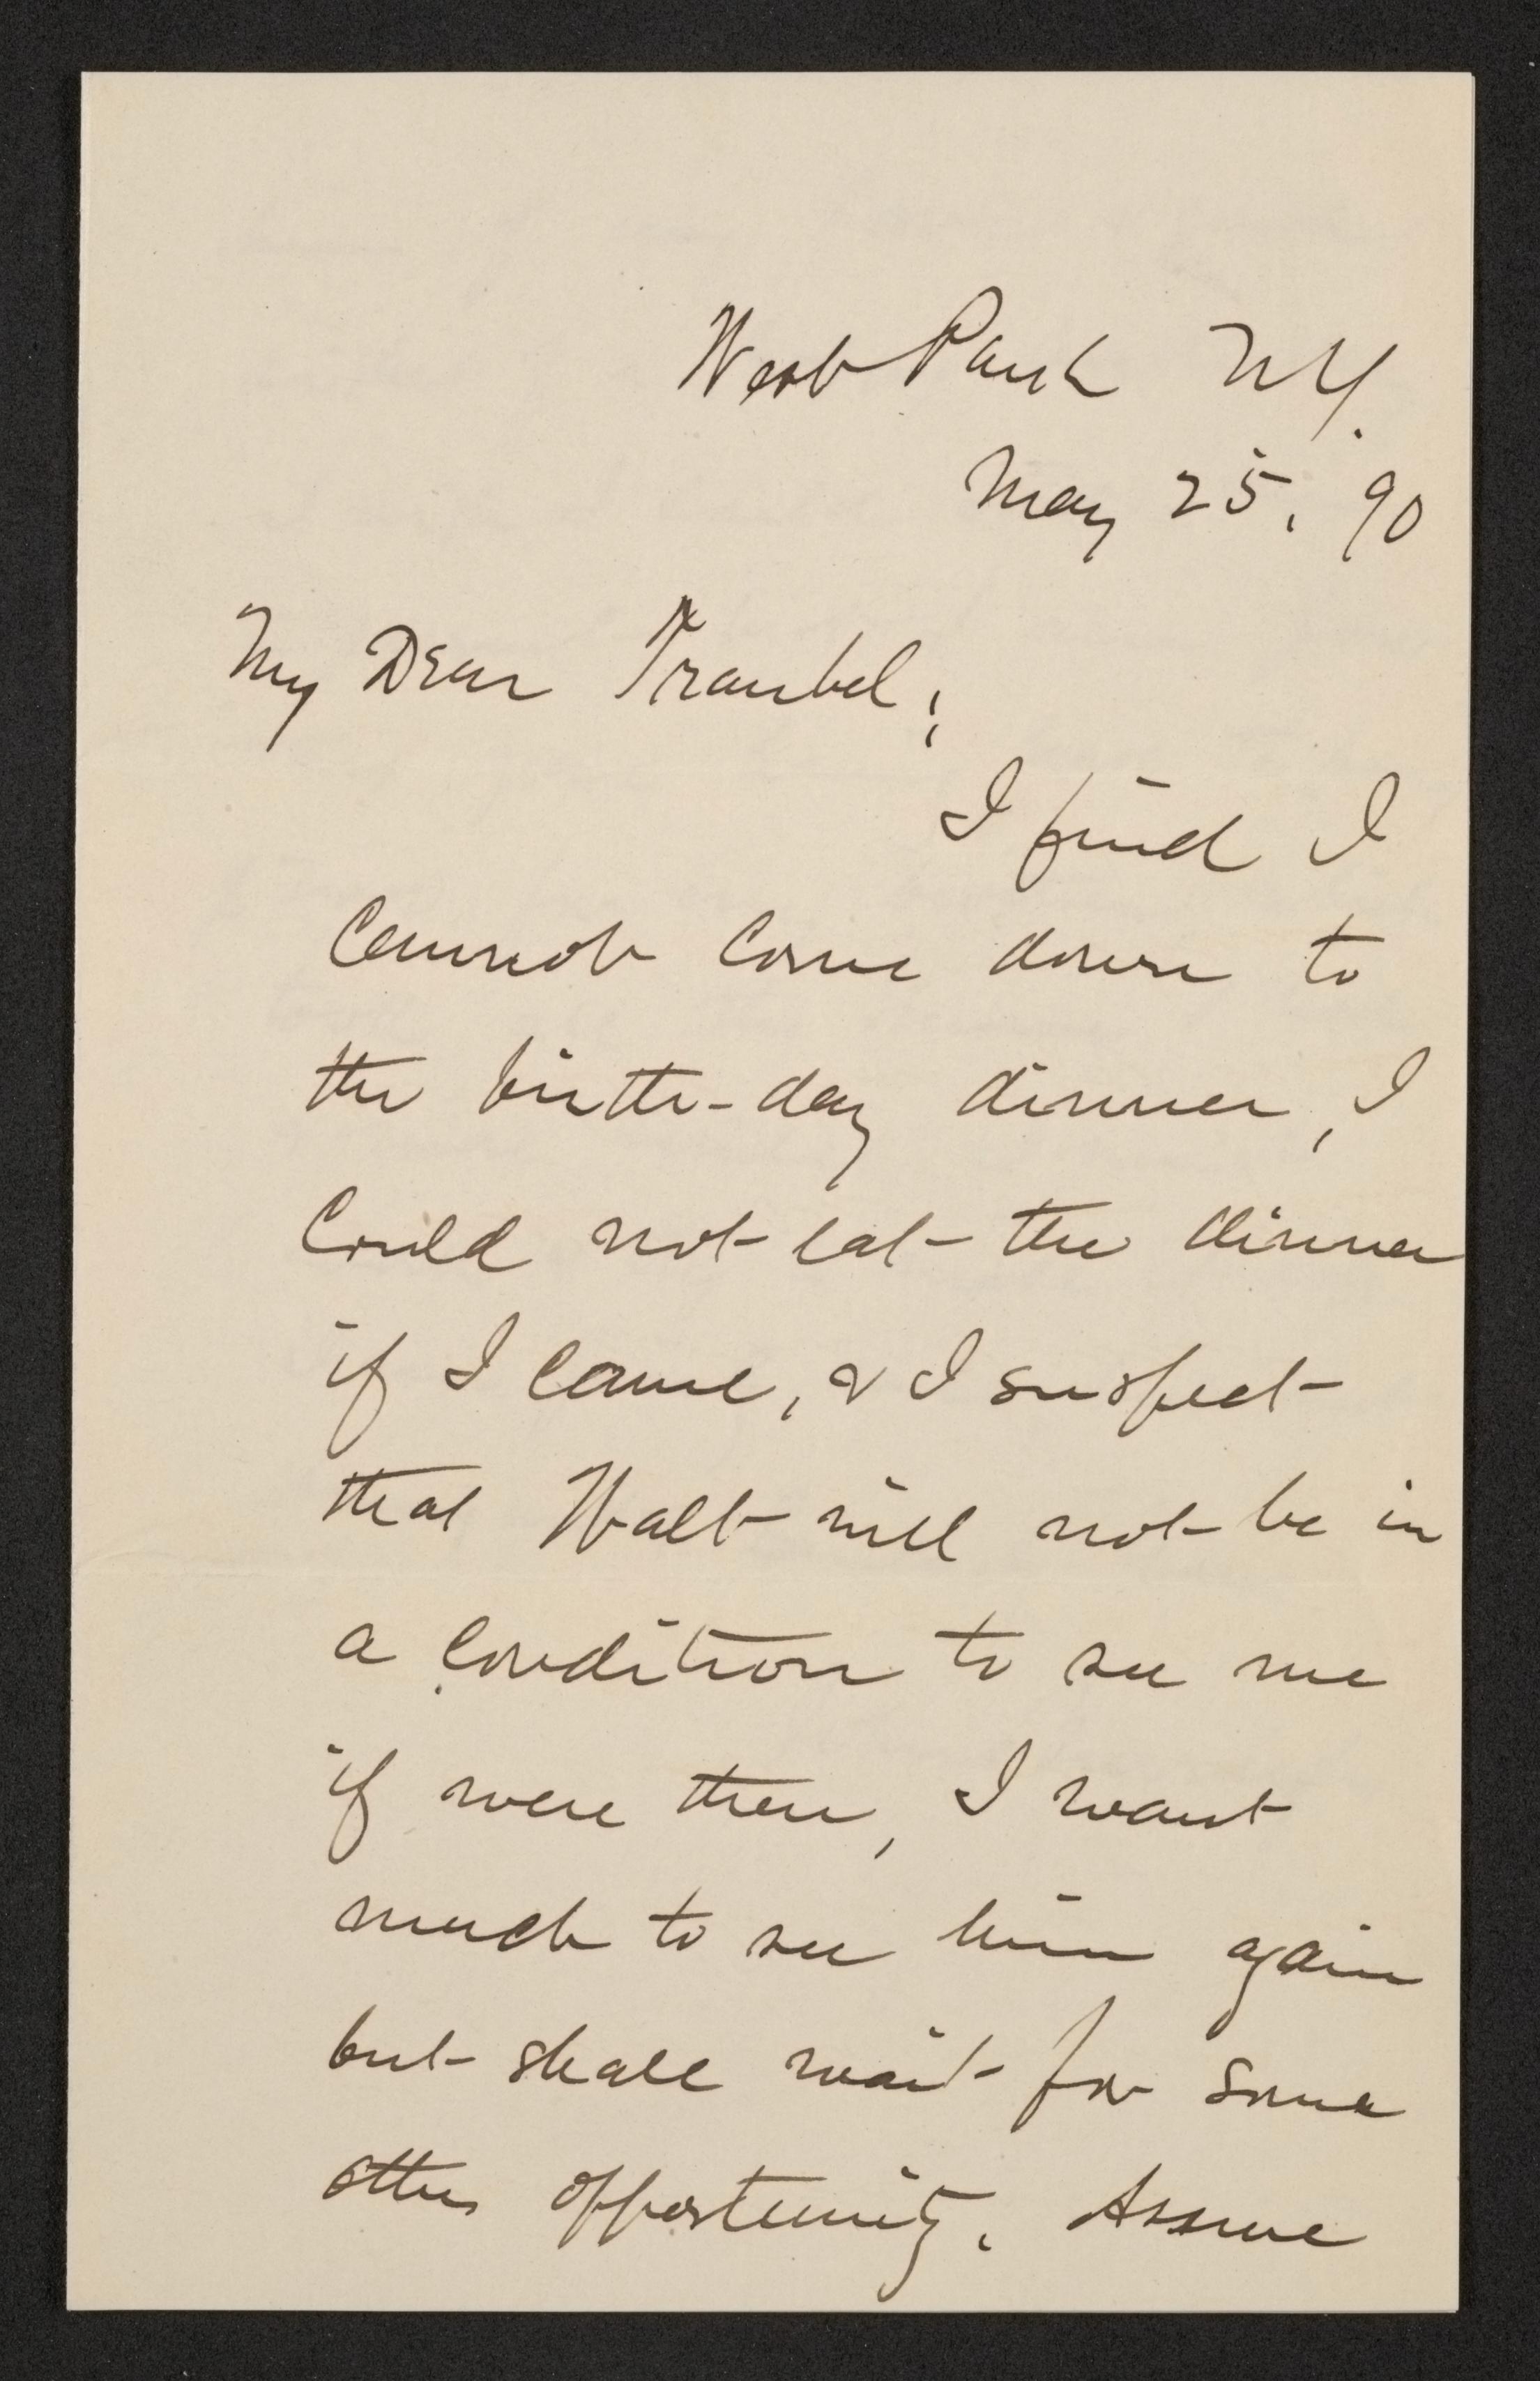 West Park N.Y.
May 25, 90
My Dear Traubel;
I find I
cannot come down to
the birth-day dinner, I
could not eat the dinner
if I came, & I suspect
that Walt will not be in
a condition to see me
if were there, I want
much to see him again
but shall wait for some
other opportunity. Assure